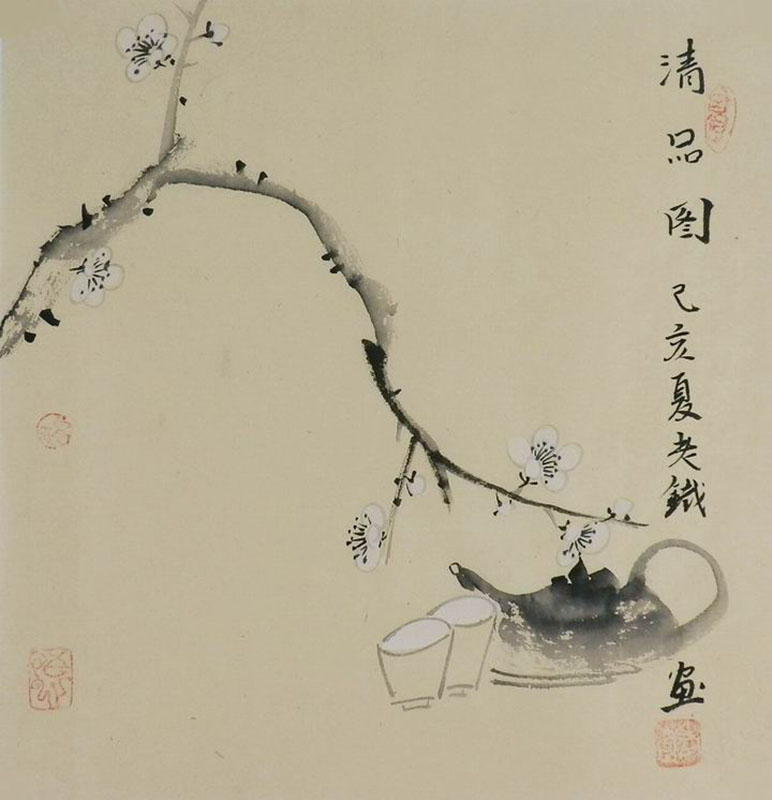 清品图 己亥夏老鐵画